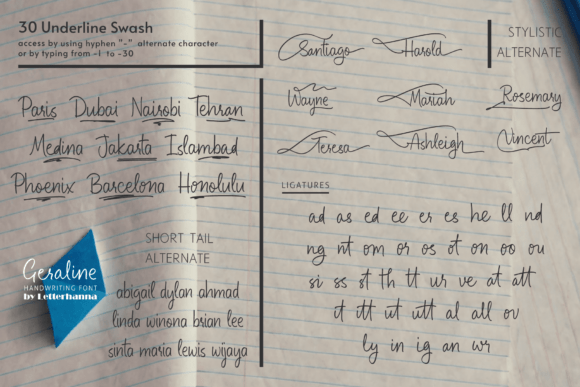 30 Underline Swash
access by using hyphen "-" alternate character
or by typing from -1 to -30
Paris Dubai Nairobi Tehran
Medina Jakarta Islambad
Phoenix Barcelona Honolulu
Geraline
HANDWRITING FONT
by Letterhanna
SHORT TAIL
ALTERNATE
abigail dylan ahmad
linda winona brian lee
sinta maria lewis wijaya
STYLISTIC
ALTERNATE
Santiago Harold
Wayne Mariah Rosemary
Teresa Ashleigh Vincent
LIGATURES
ad as ed ee er es he ll nd
ng nt om or os ot on oo ou
si ss st th tt ur ve at att
it itt ut utt al all ov
ly in ig an wr